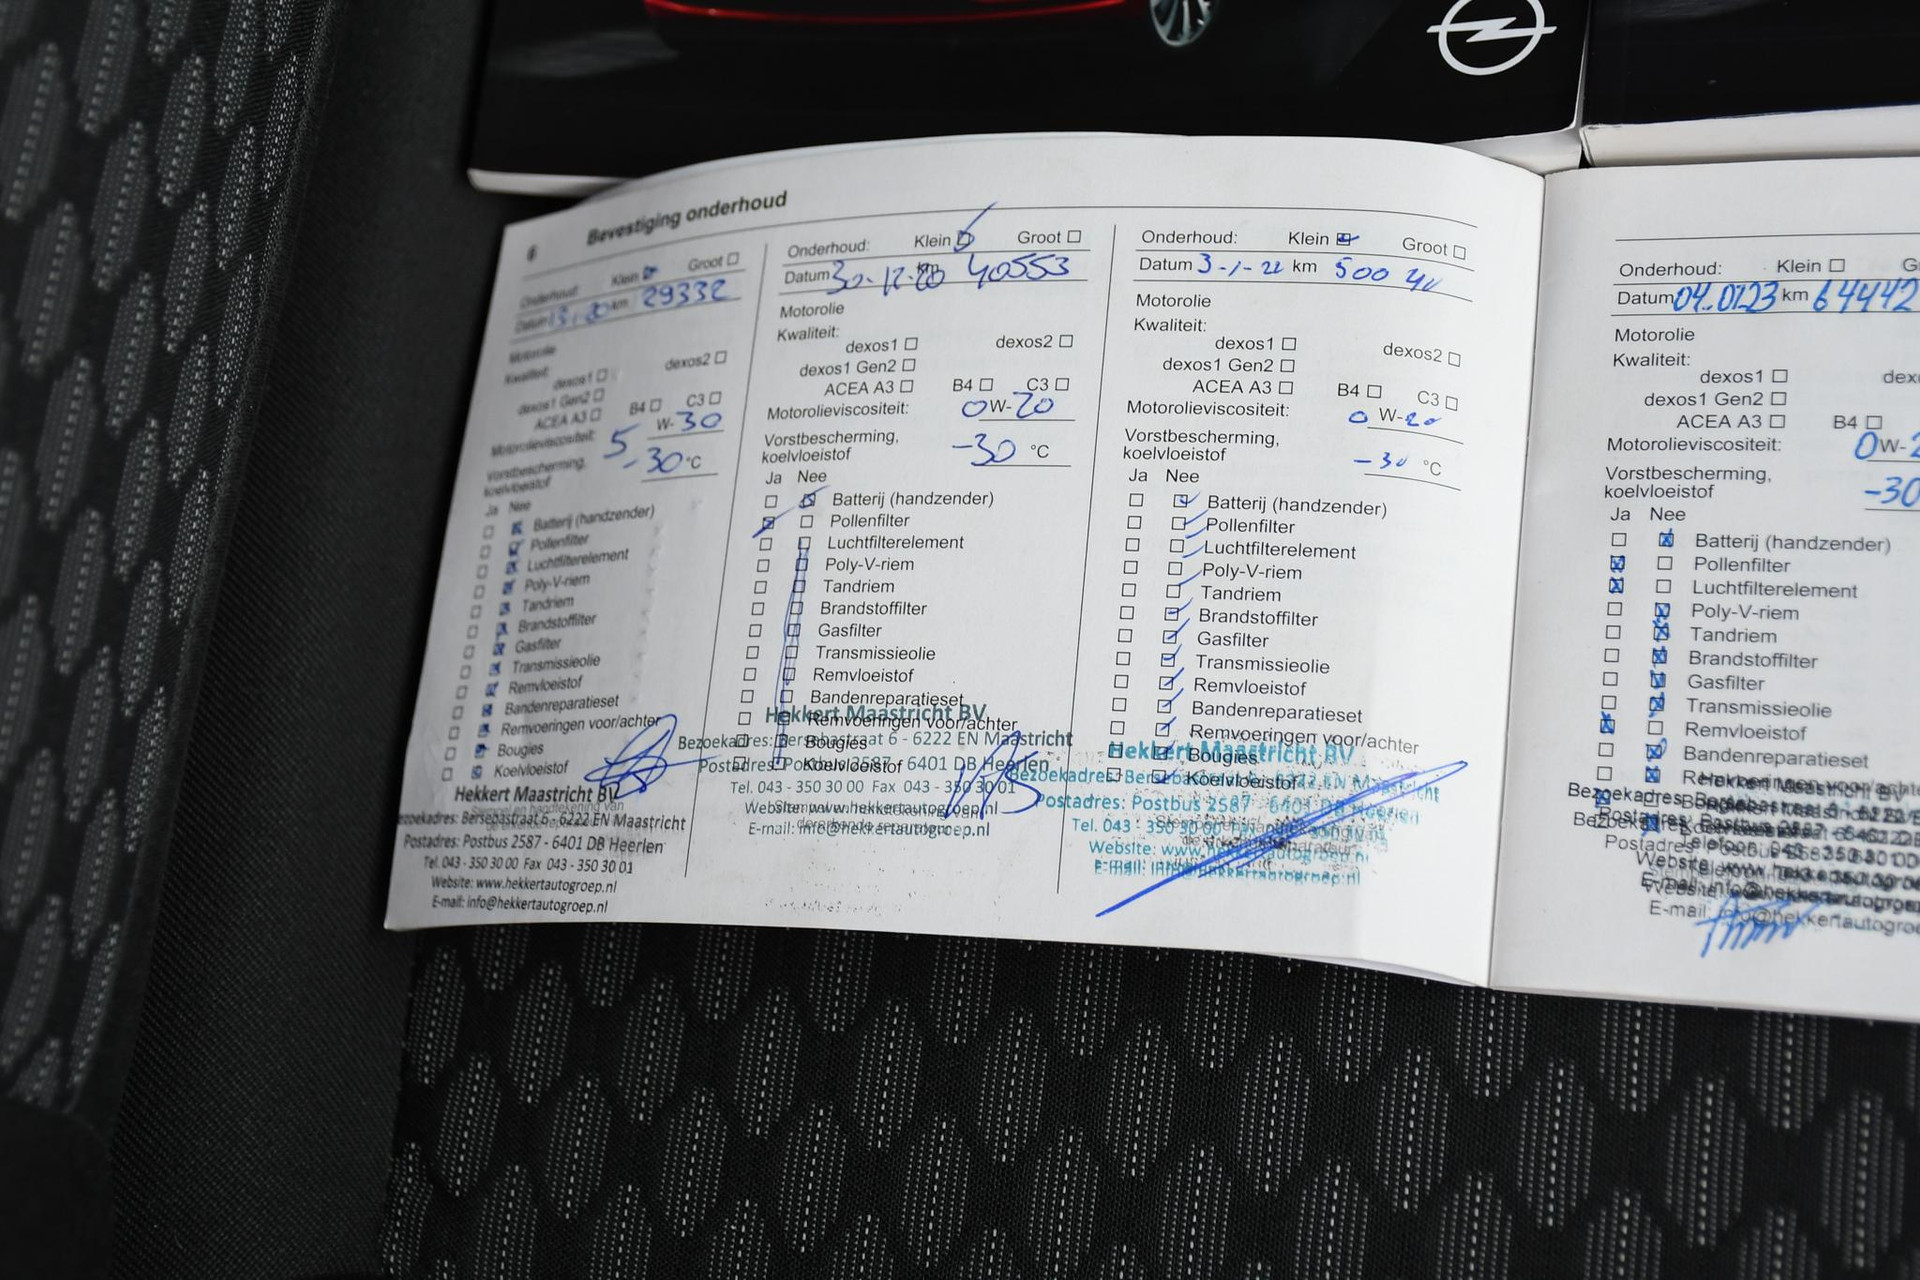 6 Bevestiging onderhoud
Onderhoud: Klein Groot
Datum km 29332
Motorolie
Kwaliteit:
dexos1 dexos2
dexos1 Gen2
ACEA A3 B4 C3
Motorolieviscositeit: 5 W-30
Vorstbescherming,
koelvloeistof -30 °C
Ja Nee
Batterij (handzender)
Pollenfilter
Luchtfilterelement
Poly-V-riem
Tandriem
Brandstoffilter
Gasfilter
Transmissieolie
Remvloeistof
Bandenreparatieset
Remvoeringen voor/achter
Bougies
Koelvloeistof
Hekkert Maastricht BV
Bezoekadres: Bersebastraat 6 - 6222 EN Maastricht
Postadres: Postbus 2587 - 6401 DB Heerlen
Tel. 043 - 350 30 00 Fax 043 - 350 30 01
Website: www.hekkertautogroep.nl
E-mail: info@hekkertautogroep.nl
Onderhoud: Klein Groot
Datum 30-12-20 km 40553
Motorolie
Kwaliteit:
dexos1 dexos2
dexos1 Gen2
ACEA A3 B4 C3
Motorolieviscositeit: 0W-20
Vorstbescherming,
koelvloeistof -30 °C
Ja Nee
Batterij (handzender)
Pollenfilter
Luchtfilterelement
Poly-V-riem
Tandriem
Brandstoffilter
Gasfilter
Transmissieolie
Remvloeistof
Bandenreparatieset
Remvoeringen voor/achter
Bougies
Koelvloeistof
Hekkert Maastricht BV
Bezoekadres: Bersebastraat 6 - 6222 EN Maastricht
Postadres: Postbus 2587 - 6401 DB Heerlen
Tel. 043 - 350 30 00 Fax 043 - 350 30 01
Website: www.hekkertautogroep.nl
E-mail: info@hekkertautogroep.nl
Onderhoud: Klein Groot
Datum 3-1-22 km 500
Motorolie
Kwaliteit:
dexos1 dexos2
dexos1 Gen2
ACEA A3 B4 C3
Motorolieviscositeit: 0 W-20
Vorstbescherming,
koelvloeistof -30 °C
Ja Nee
Batterij (handzender)
Pollenfilter
Luchtfilterelement
Poly-V-riem
Tandriem
Brandstoffilter
Gasfilter
Transmissieolie
Remvloeistof
Bandenreparatieset
Remvoeringen voor/achter
Bougies
Koelvloeistof
Hekkert Maastricht BV
Bezoekadres: Bersebastraat 6 - 6222 EN Maastricht
Postadres: Postbus 2587 - 6401 DB Heerlen
Tel. 043 - 350 30 00
Website: www.hekkertautogroep.nl
E-mail: info@hekkertautogroep.nl
Onderhoud: Klein
Datum 04.0123 km 64442
Motorolie
Kwaliteit:
dexos1
dexos1 Gen2
ACEA A3 B4
Motorolieviscositeit: 0W-2
Vorstbescherming,
koelvloeistof -30
Ja Nee
Batterij (handzender)
Pollenfilter
Luchtfilterelement
Poly-V-riem
Tandriem
Brandstoffilter
Gasfilter
Transmissieolie
Remvloeistof
Bandenreparatieset
Bezoekadres
Postadres
Website
E-mail: info@hekkertautogroe